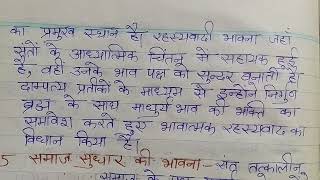 का प्रमुख स्थान है। रहस्यवादी भावना जहाँ
संतों के आध्यात्मिक चिंतन में सहायक हुई
है, वहीं उनके भाव पक्ष को सुन्दर बनाती है।
दाम्पत्य प्रतीकों के माध्यम से इन्होंने निर्गुण
ब्रह्म के साथ माधुर्य भाव की भक्ति का
समावेश करते हुए भावात्मक रहस्यवाद का
विधान किया है।
5 समाज सुधार की भावना - संत तत्कालीन
समाज के